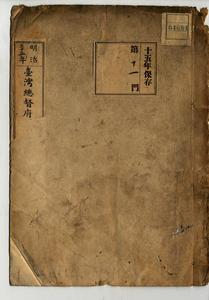 十五年保存
第十一門
明治
臺灣總督府